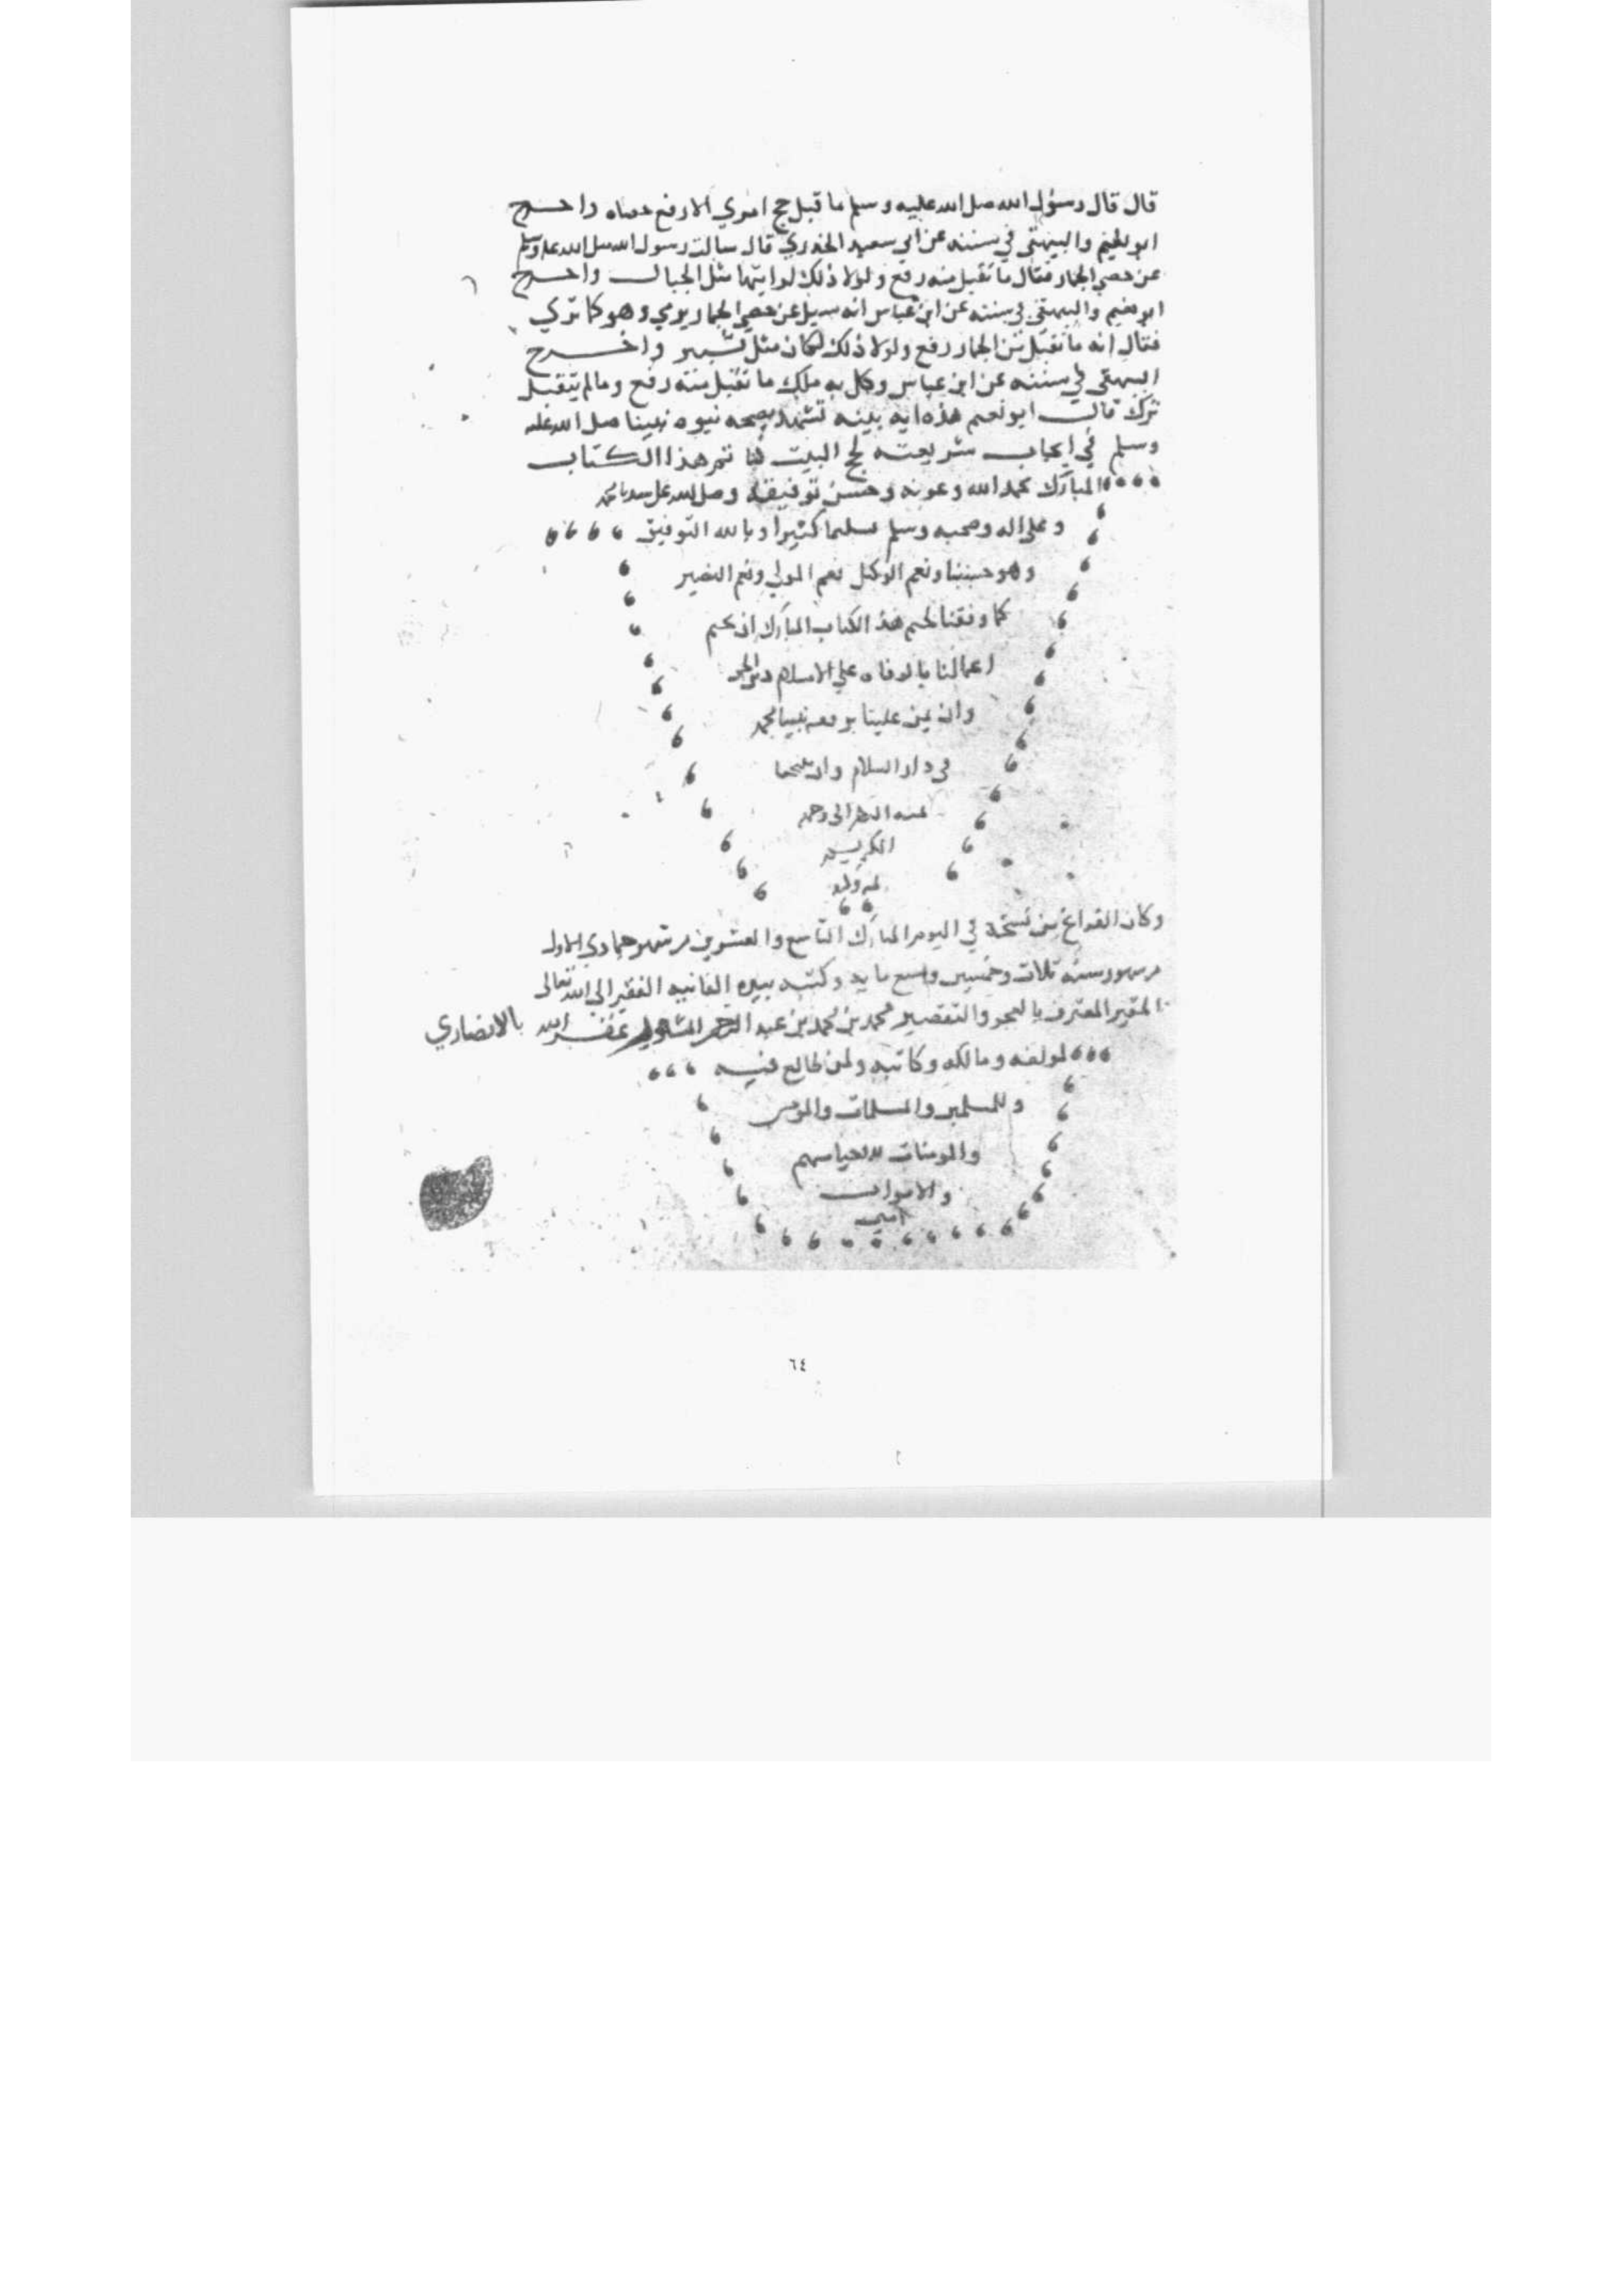 قال قال رسول الله صلى الله عليه وسلم ما قبل حج امري الا رفع حصاه واخرج
ابو نعيم والبيهقي في سننه عن ابي سعيد الخدري قال سالت رسول الله صلى الله عليه وسلم
عن حصي الجمار فقال ما تقبل منه رفع ولولا ذلك لرايتها مثل الجبال واخرج
ابو نعيم والبيهقي في سننه عن ابن عباس انه سيل عن حصي الجمار يرمي وهو كما تري
فقال انه ما تقبل من الجمار رفع ولولا ذلك لكان مثل ثبير واخرج
البيهقي في سننه عن ابن عباس وكل به ملك ما تقبل منه رفع وما لم يتقبل
ترك قال ابو نعيم هذه ايه بينه تشهد بصحه نبوه نبينا صلى الله عليه
وسلم في ايجاب شريعته لحج البيت تم هذا الكتاب
المبارك بحمد الله وعونه وحسن توفيقه وصلى الله على سيدنا محمد
وعلى اله وصحبه وسلم تسليما كثيرا وبالله التوفيق
وهو حسبنا ونعم الوكيل نعم المولي ونعم النصير
كما وفقنا لختم هذا الكتاب المبارك ان يختم
اعمالنا بالوفاه علي الاسلام
وان يمن علينا نبينا محمد
في دار السلام وان يمنحنا
النظر الى وجهه
الكريم
بمنه وكرمه
وكان الفراغ من نسخه في اليوم المبارك التاسع والعشرين من شهر جمادي الاول
من شهور سنه ثلاث وخمسين وتسع مايه وكتبه بيده الفانيه الفقير الى الله تعالى
الحقير المعترف بالعجز والتقصير محمد بن محمد بن عبد الرحمن غفر الله بالانصاري
لمولفه ومالكه وكاتبه ولمن طالع فيه
وللمسلمين والمسلمات والمؤمنين
والمومنات الاحيا منهم
والاموات
امين
٦٤